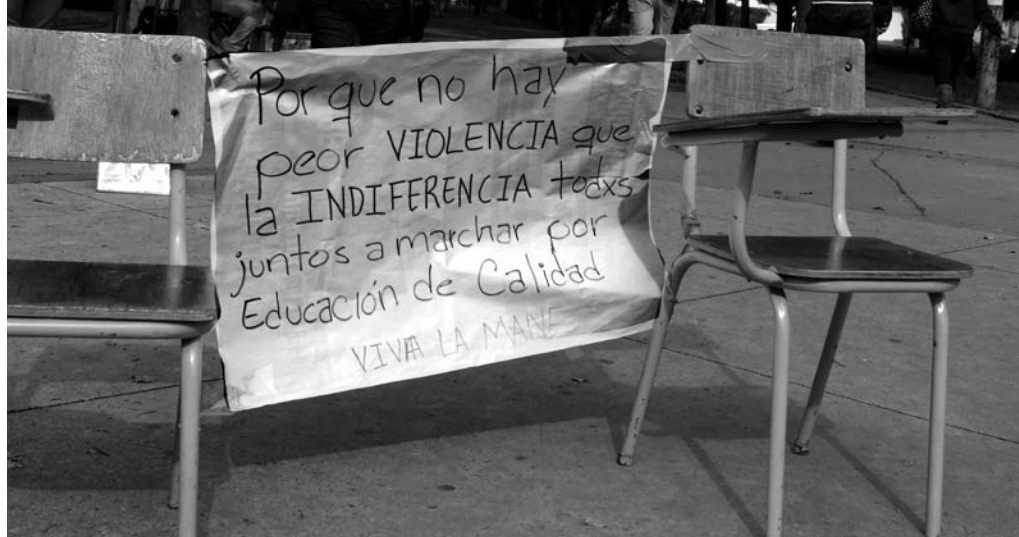 Por que no hay
peor VIOLENCIA que
la INDIFERENCIA todxs
juntos a marchar por
Educación de Calidad
VIVA LA MANE